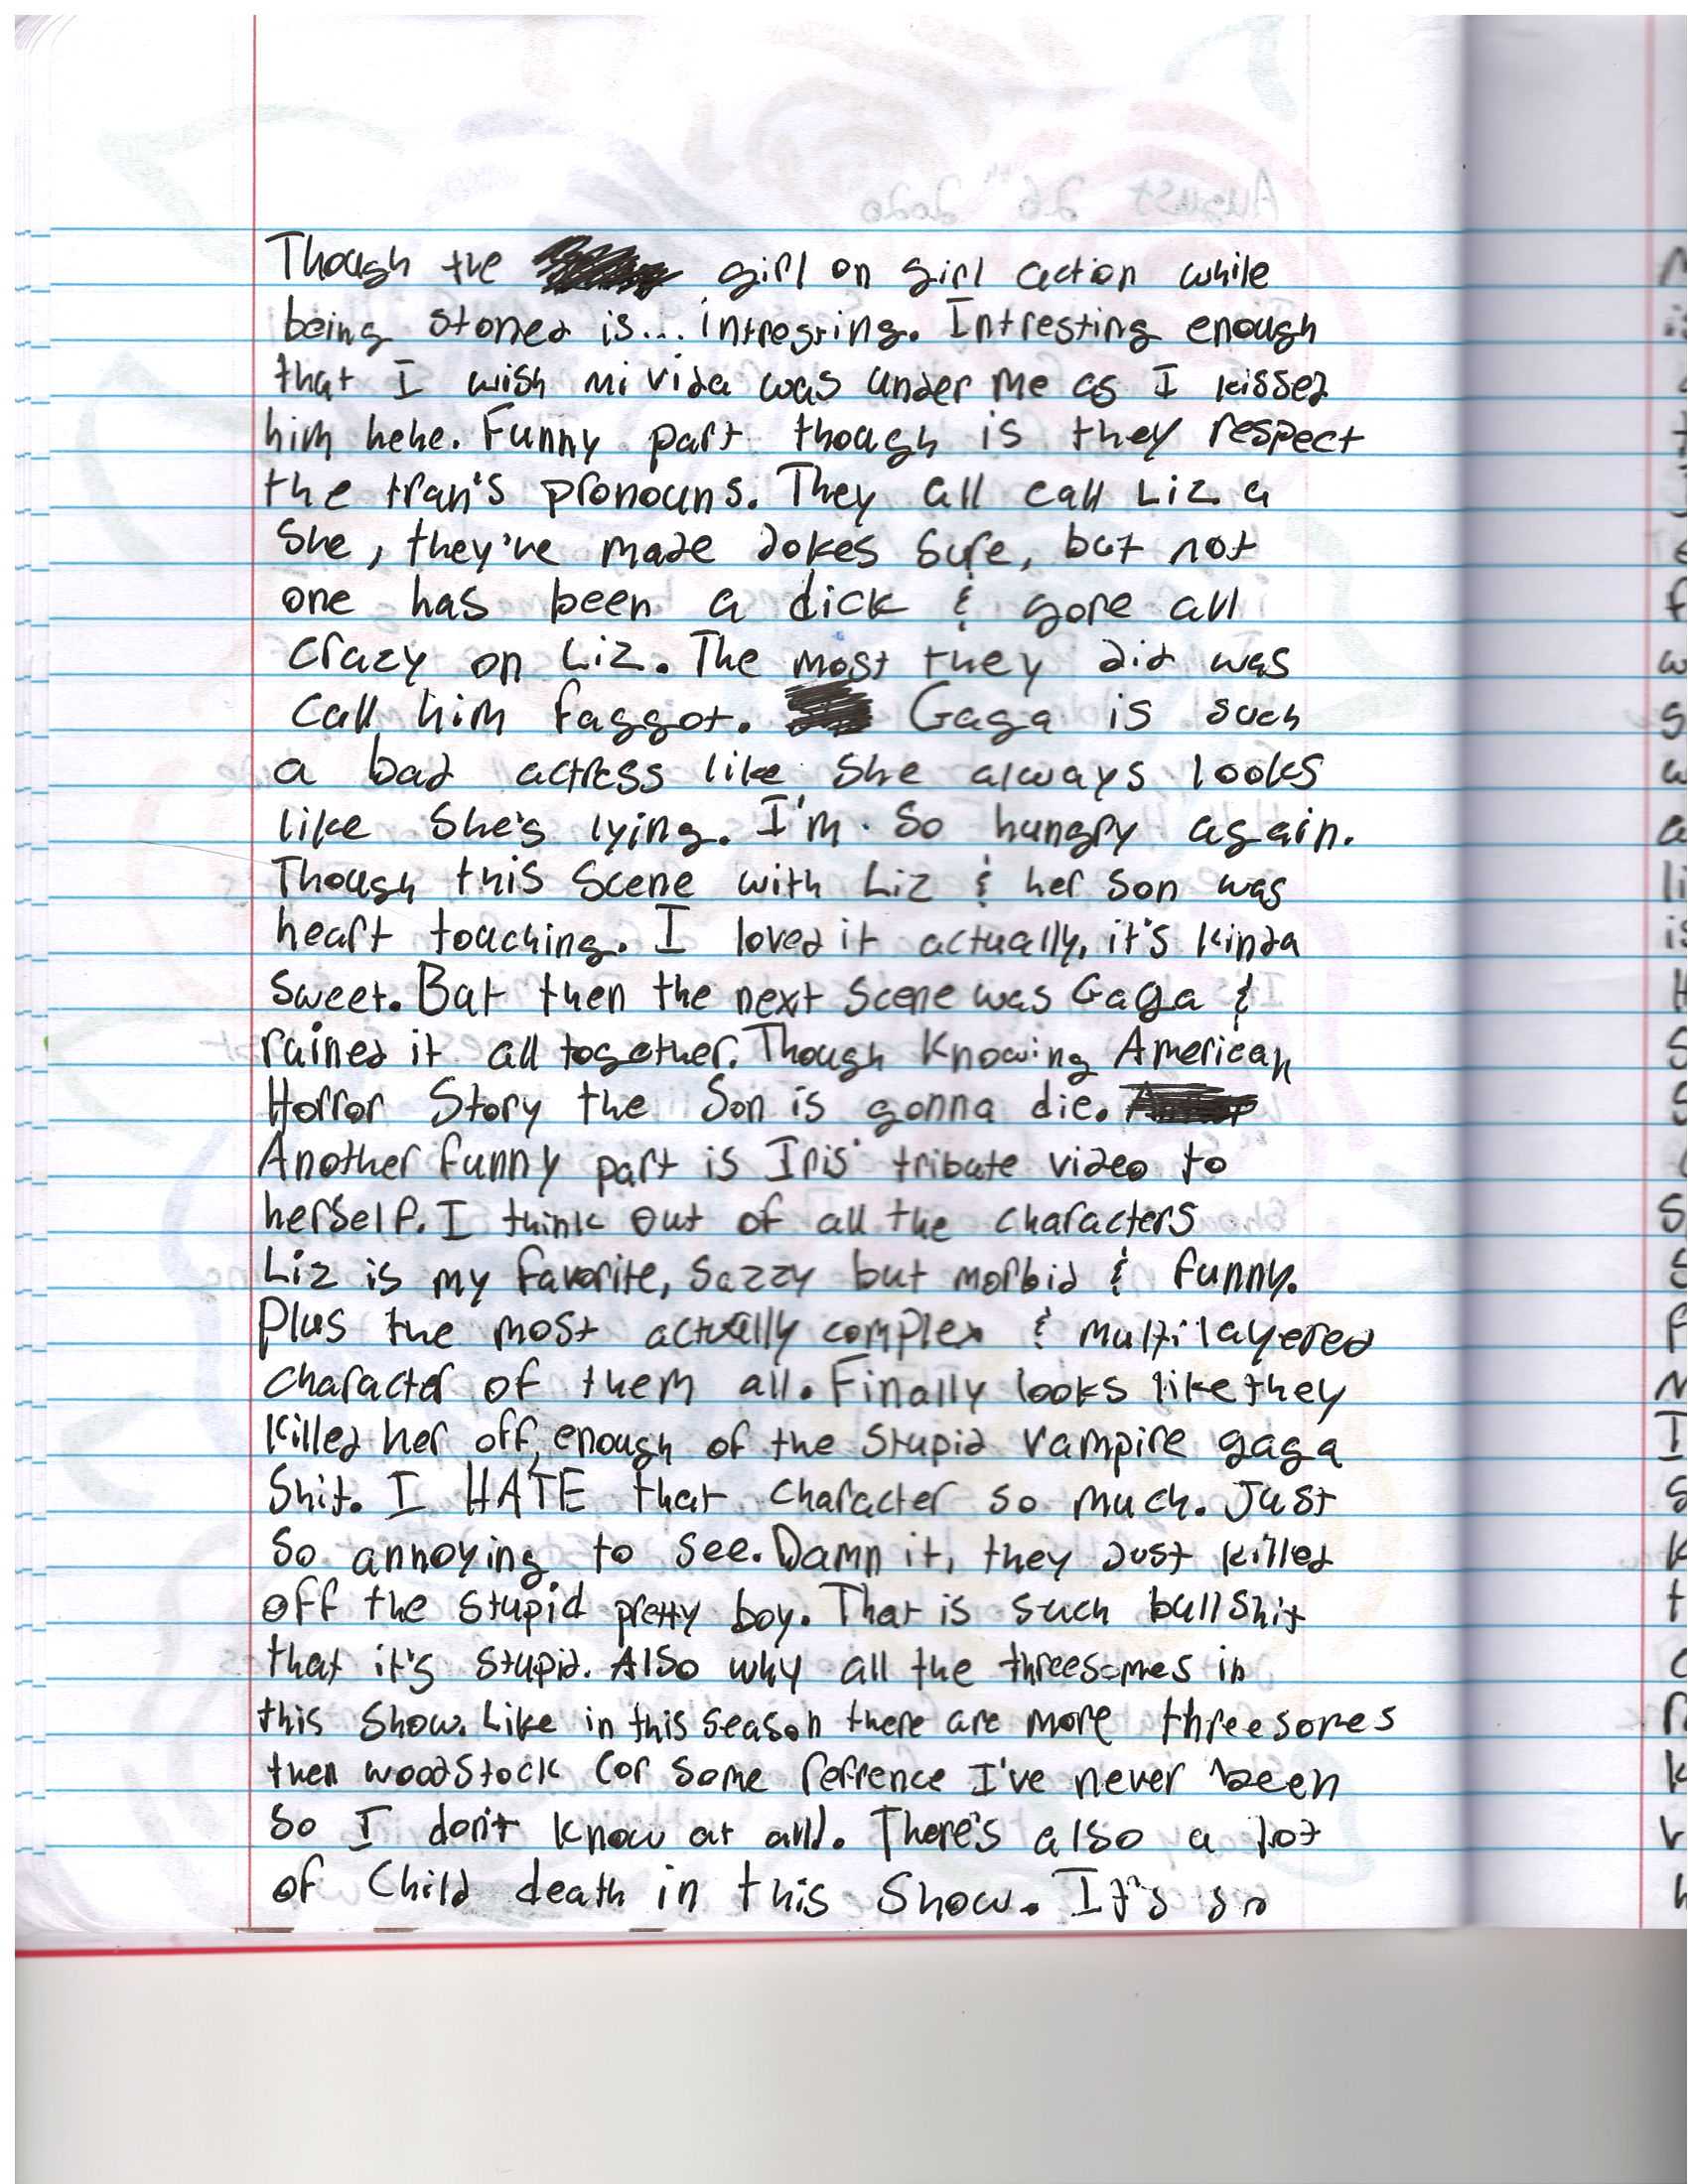 Though the girl on girl action while
being stoned is... intresting. Intresting enough
that I wish mi vida was under me as I kissed
him hehe. Funny part though is they respect
the tran's pronouns. They all call Liz a
she, they've made jokes sure, but not
one has been a dick & gone all
crazy on Liz. The most they did was
call him faggot. Gaga is such
a bad actress like she always looks
like she's lying. I'm so hungry again.
Though this scene with Liz & her son was
heart touching. I loved it actually, it's kinda
sweet. But then the next scene was Gaga &
ruined it all together. Though knowing American
Horror Story the son is gonna die.
Another funny part is Iris' tribute video to
herself. I think out of all the characters
Liz is my favorite, sazzy but morbid & funny.
Plus the most actually complex & multilayered
character of them all. Finally looks like they
killed her off, enough of the stupid vampire gaga
shit. I HATE that character so much. Just
so annoying to see. Damn it, they just killed
off the stupid pretty boy. That is such bullshit
that it's stupid. Also why all the threesomes in
this show. Like in this season there are more threesomes
then woodstock (or some refrence I've never been
so I don't know at all). There's also a lot
of child death in this show. It's so